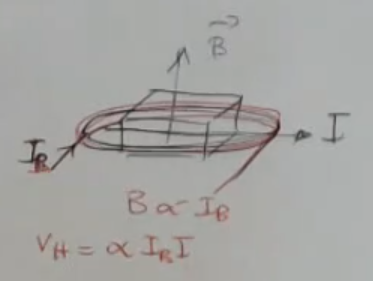 B
I
I_B
B ∝ I_B
V_H = α I_B I